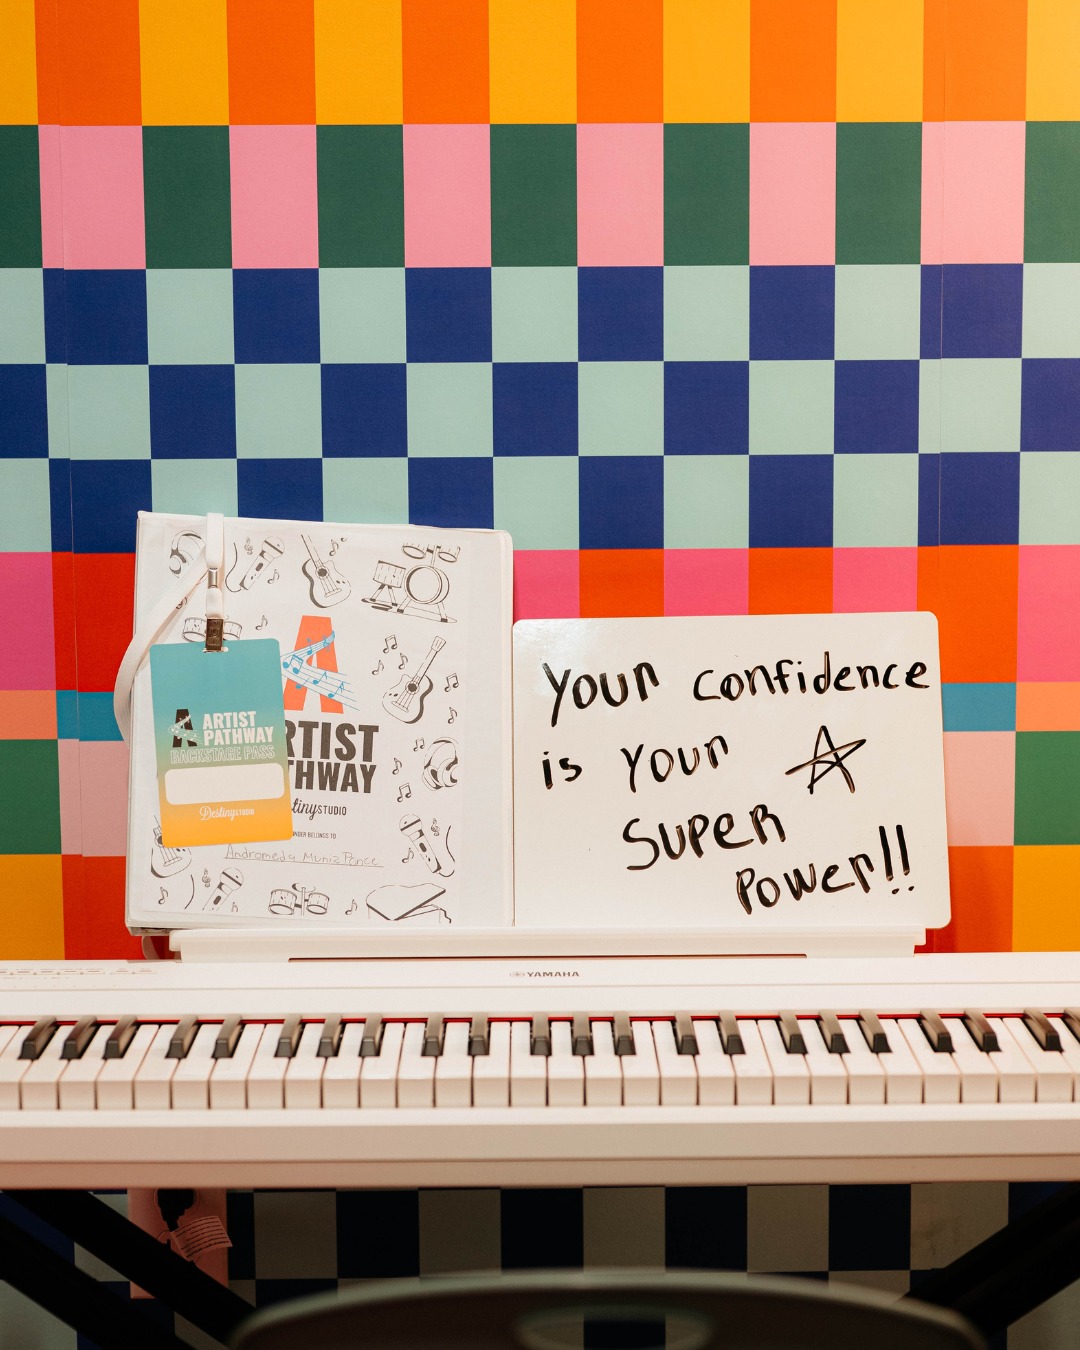 ARTIST
PATHWAY
BACKSTAGE PASS
DestinySTUDIO
RTIST
THWAY
tinySTUDIO
BELONGS TO
Andromeda Muniz Ponce
Your confidence
is your
Super
Power!!
YAMAHA